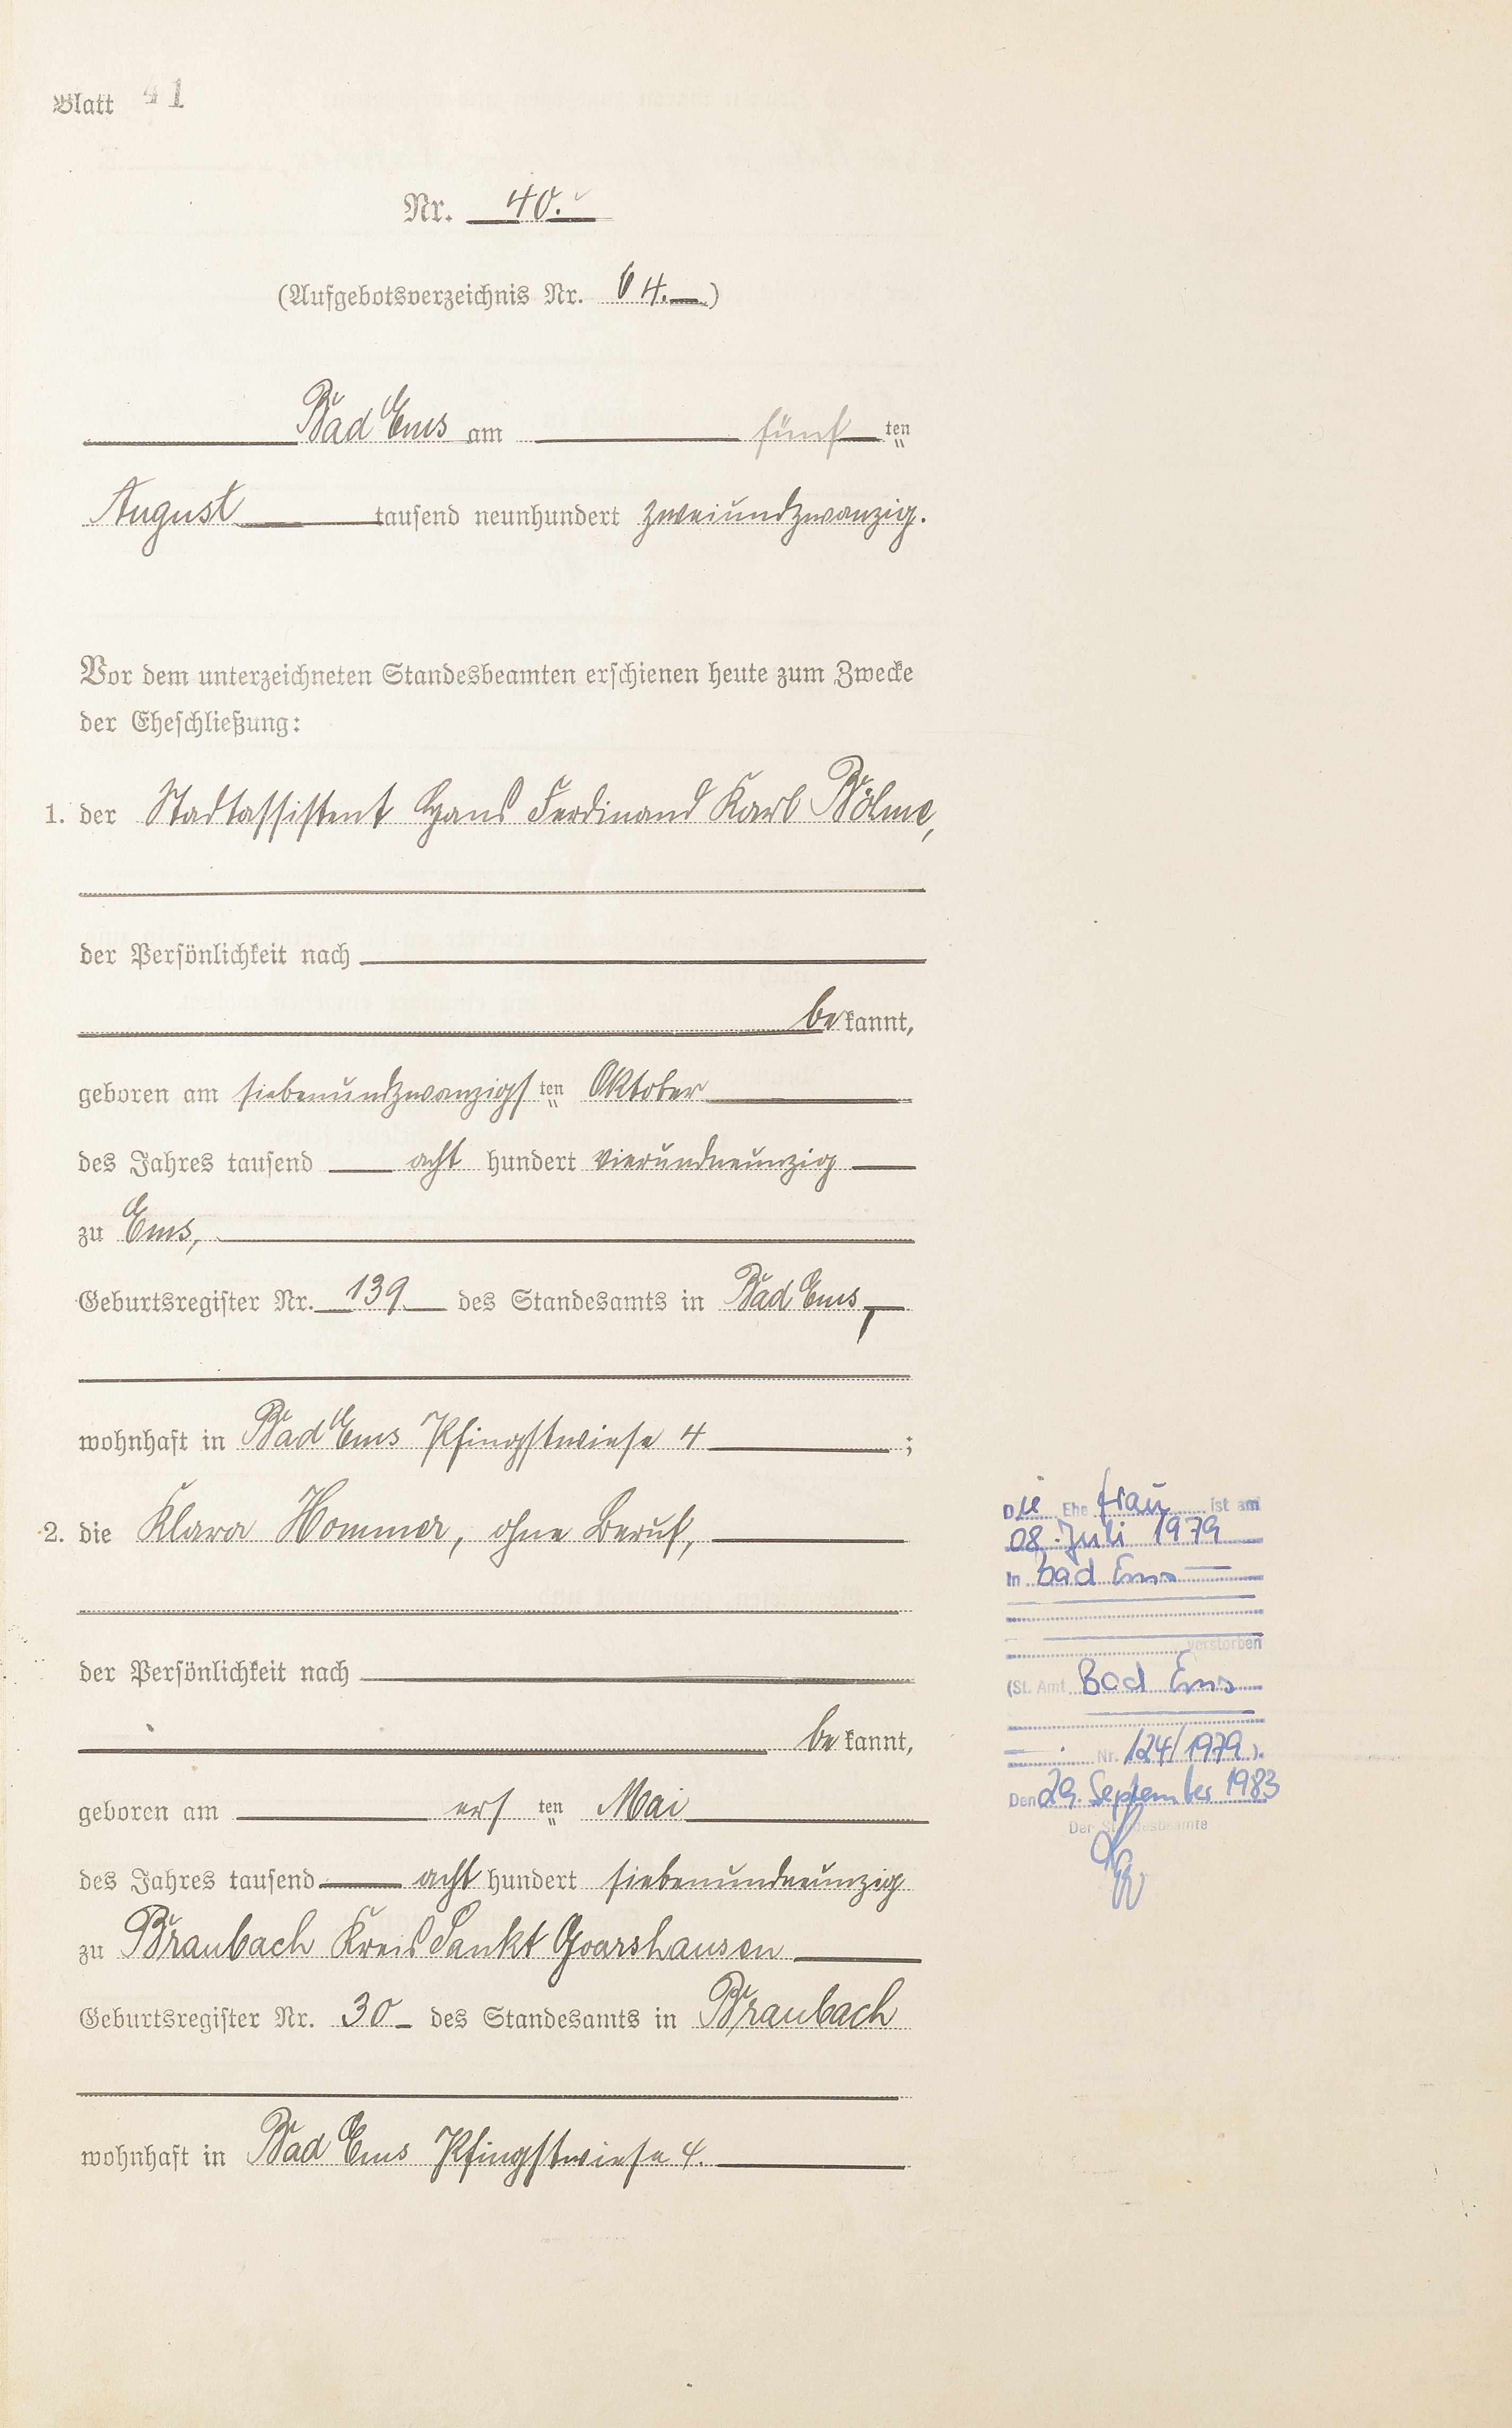 Blatt 41
Nr. 40.
(Aufgebotsverzeichnis Nr. 64.)
Bad Ems am fünf ten
August tausend neunhundert zweiundzwanzig.
Vor dem unterzeichneten Standesbeamten erschienen heute zum Zwecke
der Eheschließung:
1. der Stadtassistent Hans Ferdinand Karl Bölme,
der Persönlichkeit nach
bekannt,
geboren am siebenundzwanzigsten Oktober
des Jahres tausend acht hundert vierundneunzig
zu Ems,
Geburtsregister Nr. 139 des Standesamts in Bad Ems,
wohnhaft in Bad Ems Pfingstwiese 4 ;
2. die Klara Hommer, ohne Beruf,
der Persönlichkeit nach
bekannt,
geboren am ersten Mai
des Jahres tausend acht hundert siebenundneunzig
zu Braubach Kreis Sankt Goarshausen
Geburtsregister Nr. 30 des Standesamts in Braubach
wohnhaft in Bad Ems Pfingstwiese 4.
Die Ehefrau ist am
08. Juli 1979
in Bad Ems
verstorben
(St. Amt Bad Ems
Nr. 124/1979).
Den 29. September 1983
Der Standesbeamte